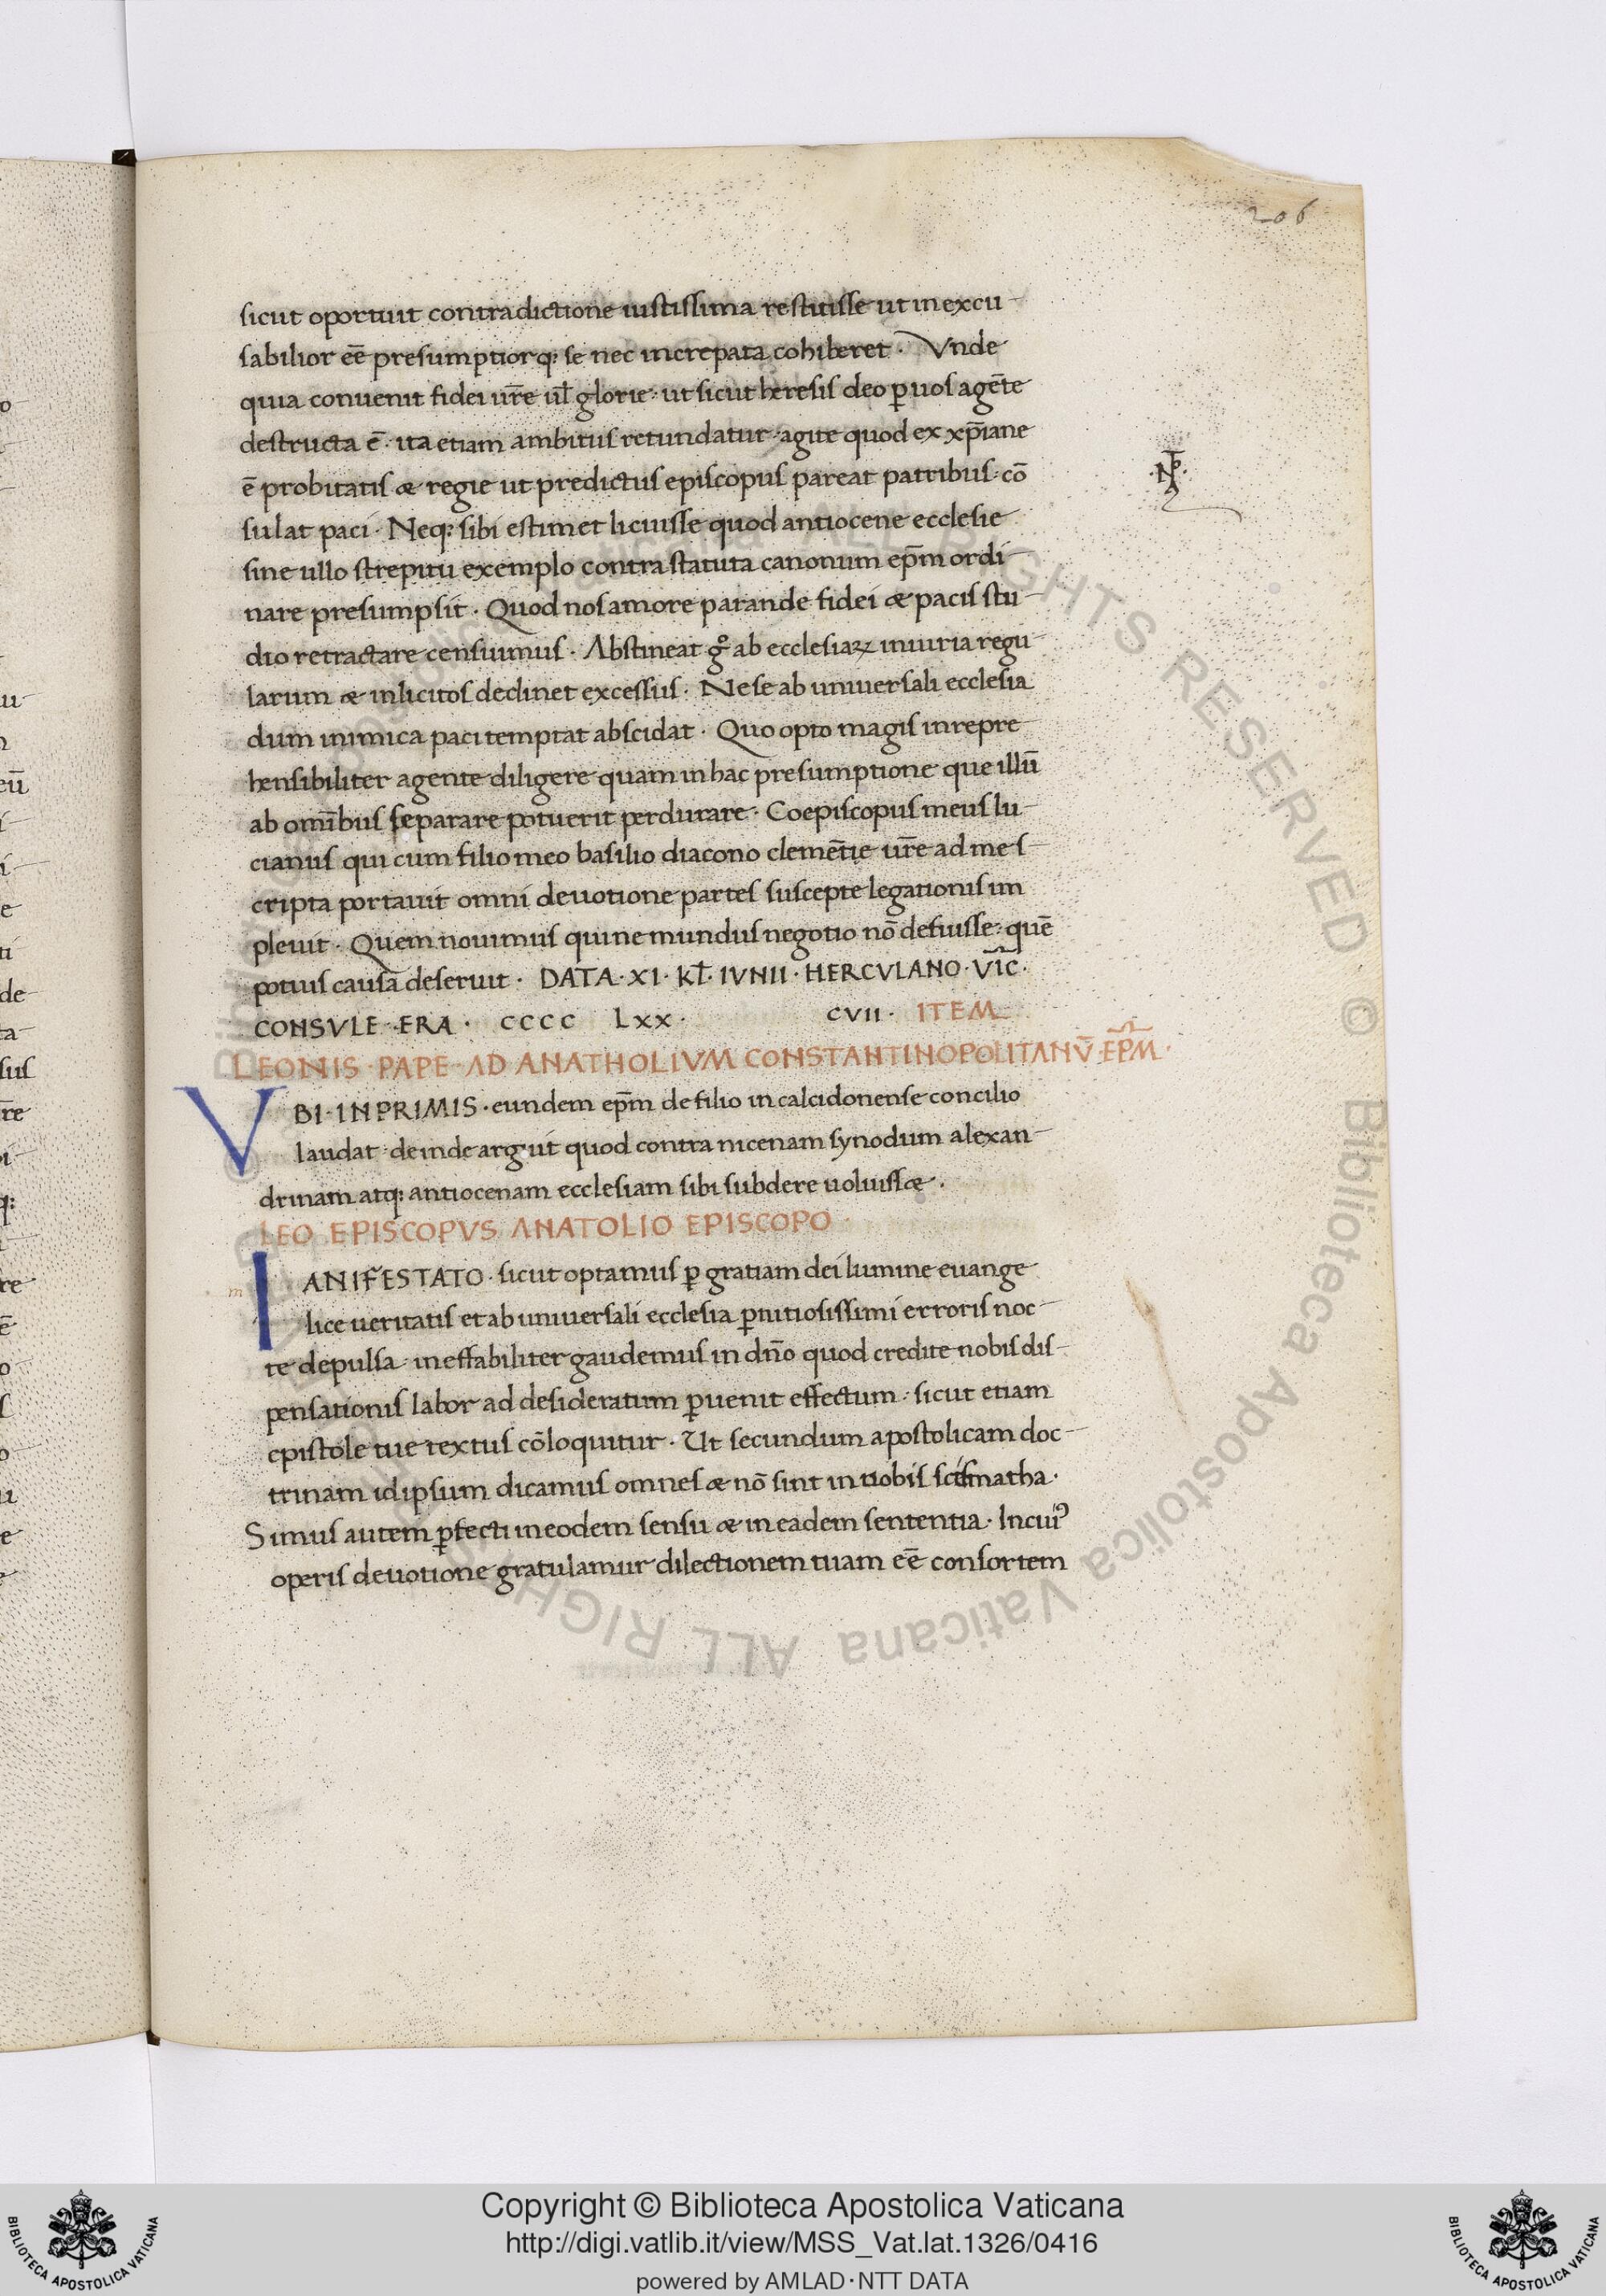 206
sicut oportuit contradictione iustissima restitisse ut inexcu-
sabilior eē presumptiorq; se nec increpata cohiberet · Vnde
quia conuenit fidei ur̄e ul̄ glorie · ut sicut heresis deo ꝑ uos agēte
destructa ē · ita etiam ambitus retundatur · agite quod ex xp̄iane
ē probitatis & regie ut predictus episcopus pareat patribus · cō
sulat paci · Neq; sibi estimet licuisse quod antiocene ecclesie
sine ullo strepitu exemplo contra statuta canonum ep̄m ordi-
nare presumpsit · Quod nos amore parande fidei & pacis stu-
dio retractare censuimus · Abstineat gͦ ab ecclesiaꝝ iniuria regu-
larum & inlicitos declinet excessus · Ne se ab uniuersali ecclesia
dum inimica paci temptat abscidat · Quo opto magis inrepre-
hensibiliter agente diligere quam in hac presumptione que illū
ab omībus separare potuerit perdurare · Coepiscopus meus lu-
cianus qui cum filio meo basilio diacono clemētie ur̄e ad me s-
cripta portauit omni deuotione partes suscepte legationis im
pleuit · Quem nouimus qui ne mundus negotio nō defuisse · quē
potius causā deseruit · DATA · XI · KL̄ · IVNII · HERCVLANO · VIC̄ ·
CONSVLE · ERA · CCCC LXX · CVII · ITEM
LEONIS · PAPE · AD ANATHOLIVM CONSTANTINOPOLITANV̄ EP̄M ·
VBI · INPRIMIS · eundem ep̄m de filio in calcidonense concilio
laudat · deinde arguit quod contra nicenam synodum alexan-
drinam atq; antiocenam ecclesiam sibi subdere uoluiss& ·
LEO EPISCOPVS ANATOLIO EPISCOPO ·
m
IANIFESTATO · sicut optamus ꝑ gratiam dei lumine euange-
lice ueritatis et ab uniuersali ecclesia ꝑnitiosissimi erroris noc-
te depulsa · ineffabiliter gaudemus in dn̄o quod credite nobis dis-
pensationis labor ad desideratum ꝑuenit effectum · sicut etiam
epistole tue textus cōloquitur · Ut secundum apostolicam doc-
trinam idipsum dicamus omnes & nō sint in uobis scismatha ·
Simus autem ꝑfecti in eodem sensu & in eadem sententia · Incuiꝰ
operis deuotione gratulamur dilectionem tuam eē consortem
Copyright © Biblioteca Apostolica Vaticana
http://digi.vatlib.it/view/MSS_Vat.lat.1326/0416
powered by AMLAD·NTT DATA
BIBLIOTECA APOSTOLICA VATICANA
BIBLIOTECA APOSTOLICA VATICANA